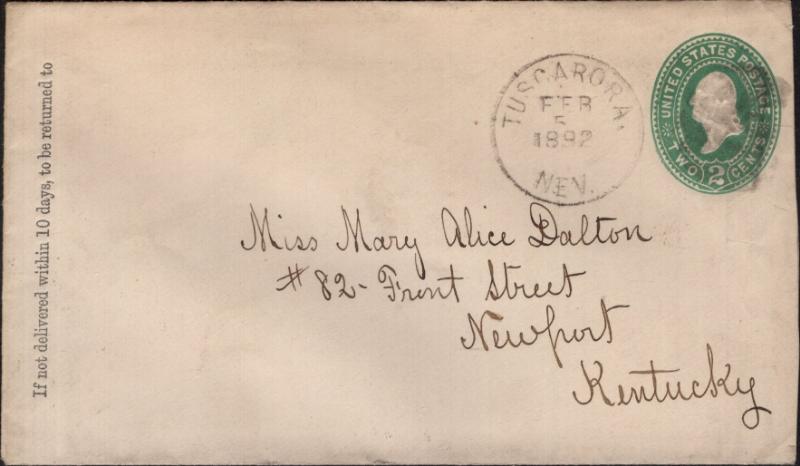 If not delivered within 10 days, to be returned to
TUSCARORA,
FEB
5
1892
NEV.
UNITED STATES POSTAGE
TWO 2 CENTS
Miss Mary Alice Dalton
#82- Front Street
Newport
Kentucky